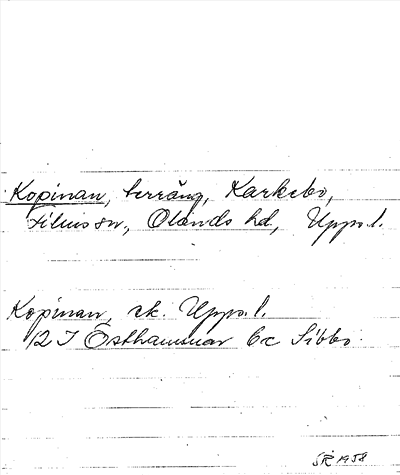 Kopinan, terräng, Karkebo,
Films sn, Olands hd, Upps.l.
Kopinan, ek. Upps.l.
12 I Östhammar 6c Sibbo
SR 1958